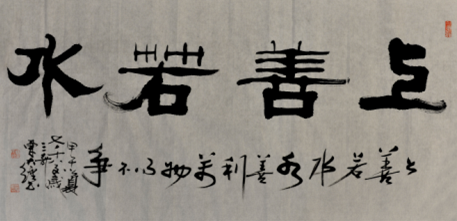 上善若水
上善若水水善利萬物而不争
甲午夏